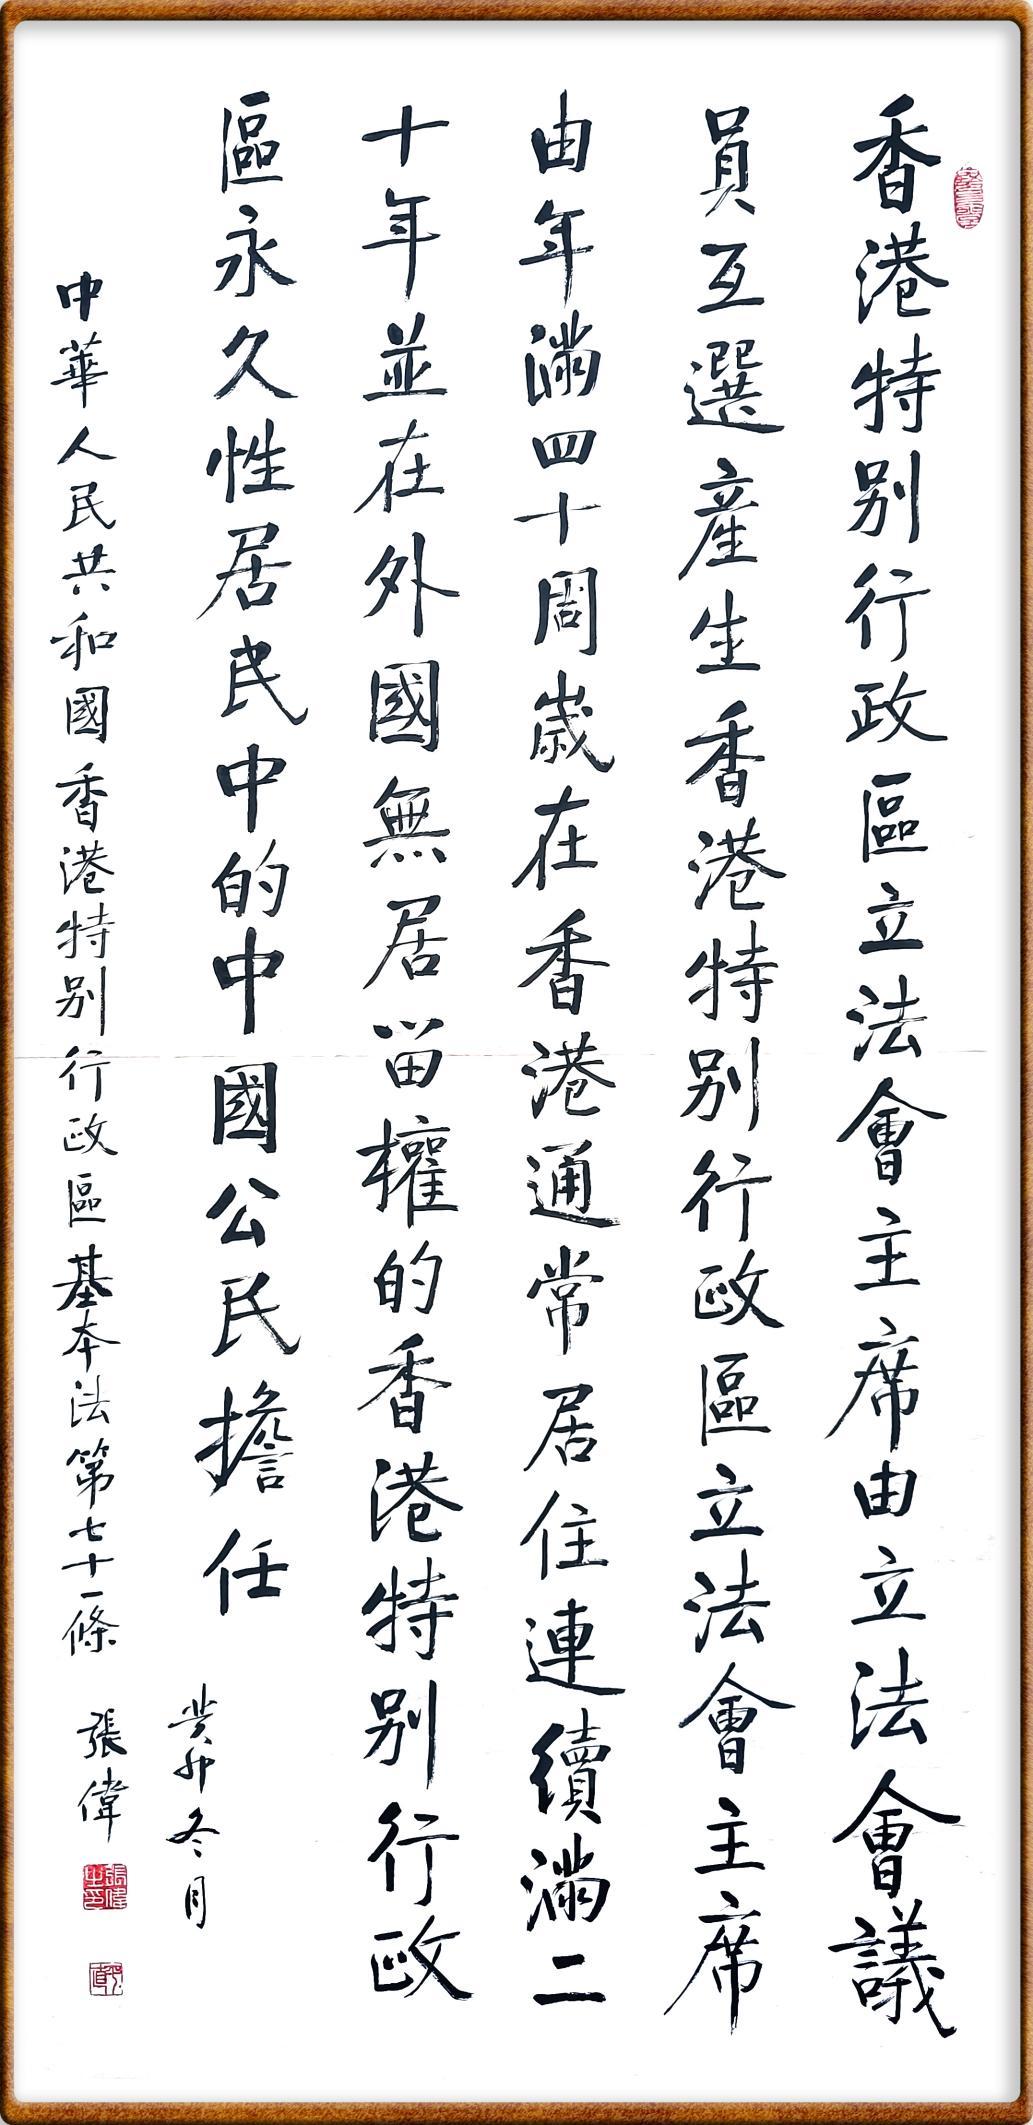 香港特别行政區立法會主席由立法會議
員互選產生香港特别行政區立法會主席
由年滿四十周歲在香港通常居住連續滿二
十年並在外國無居留權的香港特别行政
區永久性居民中的中國公民擔任
癸卯冬月
中華人民共和國香港特别行政區基本法第七十一條
張偉